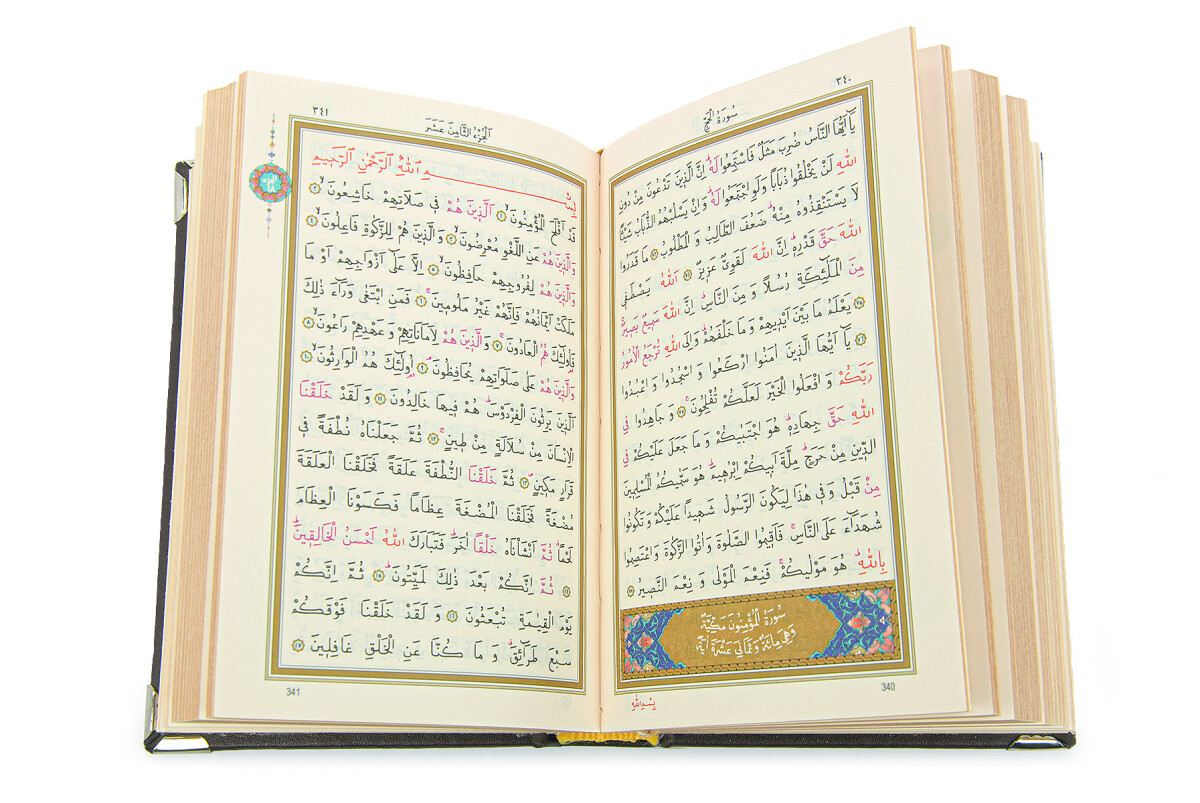 ٣٤٠
سُورَةُ الْحَجِّ
يَٓا اَيُّهَا النَّاسُ ضُرِبَ مَثَلٌ فَاسْتَمِعُوا لَهُۜ اِنَّ الَّذ۪ينَ تَدْعُونَ مِنْ دُونِ
اللّٰهِ لَنْ يَخْلُقُوا ذُبَابًا وَلَوِ اجْتَمَعُوا لَهُۜ وَاِنْ يَسْلُبْهُمُ الذُّبَابُ شَيْـًٔا
لَا يَسْتَنْقِذُوهُ مِنْهُۜ ضَعُفَ الطَّالِبُ وَالْمَطْلُوبُ ﴿٧٣﴾ مَا قَدَرُوا
اللّٰهَ حَقَّ قَدْرِه۪ۜ اِنَّ اللّٰهَ لَقَوِيٌّ عَز۪يزٌ ﴿٧٤﴾ اَللّٰهُ يَصْطَف۪ي
مِنَ الْمَلٰٓئِكَةِ رُسُلًا وَمِنَ النَّاسِۜ اِنَّ اللّٰهَ سَم۪يعٌ بَص۪يرٌۚ
﴿٧٥﴾ يَعْلَمُ مَا بَيْنَ اَيْد۪يهِمْ وَمَا خَلْفَهُمْۜ وَاِلَى اللّٰهِ تُرْجَعُ الْاُمُورُ
﴿٧٦﴾ يَٓا اَيُّهَا الَّذ۪ينَ اٰمَنُوا ارْكَعُوا وَاسْجُدُوا وَاعْبُدُوا
رَبَّكُمْ وَافْعَلُوا الْخَيْرَ لَعَلَّكُمْ تُفْلِحُونَۚ ﴿٧٧﴾ وَجَاهِدُوا فِي
اللّٰهِ حَقَّ جِهَادِه۪ۜ هُوَ اجْتَبٰيكُمْ وَمَا جَعَلَ عَلَيْكُمْ فِي
الدّ۪ينِ مِنْ حَرَجٍۜ مِلَّةَ اَب۪يكُمْ اِبْرٰه۪يمَۜ هُوَ سَمّٰيكُمُ الْمُسْلِم۪ينَ
مِنْ قَبْلُ وَف۪ي هٰذَا لِيَكُونَ الرَّسُولُ شَه۪يدًا عَلَيْكُمْ وَتَكُونُوا
شُهَدَٓاءَ عَلَى النَّاسِۚ فَاَق۪يمُوا الصَّلٰوةَ وَاٰتُوا الزَّكٰوةَ وَاعْتَصِمُوا
بِاللّٰهِۜ هُوَ مَوْلٰيكُمْۚ فَنِعْمَ الْمَوْلٰى وَنِعْمَ النَّص۪يرُ ﴿٧٨﴾
سُورَةُ الْمُؤْمِنُونَ مَكِّيَّةٌ
وَهِيَ مِائَةٌ وَثَمَانِيَ عَشْرَةَ اٰيَةً
بِسْمِ اللّٰهِ
340
٣٤١
اَلْجُزْءُ الثَّامِنَ عَشَرَ
الجزء
١٨
بِسْمِ اللّٰهِ الرَّحْمٰنِ الرَّح۪يمِ
قَدْ اَفْلَحَ الْمُؤْمِنُونَۙ ﴿١﴾ اَلَّذ۪ينَ هُمْ ف۪ي صَلَاتِهِمْ خَاشِعُونَۙ ﴿٢﴾
وَالَّذ۪ينَ هُمْ عَنِ اللَّغْوِ مُعْرِضُونَۙ ﴿٣﴾ وَالَّذ۪ينَ هُمْ لِلزَّكٰوةِ فَاعِلُونَۙ ﴿٤﴾
وَالَّذ۪ينَ هُمْ لِفُرُوجِهِمْ حَافِظُونَۙ ﴿٥﴾ اِلَّا عَلٰٓى اَزْوَاجِهِمْ اَوْ مَا
مَلَكَتْ اَيْمَانُهُمْ فَاِنَّهُمْ غَيْرُ مَلُوم۪ينَۚ ﴿٦﴾ فَمَنِ ابْتَغٰى وَرَٓاءَ ذٰلِكَ
فَاُو۬لٰٓئِكَ هُمُ الْعَادُونَۚ ﴿٧﴾ وَالَّذ۪ينَ هُمْ لِاَمَانَاتِهِمْ وَعَهْدِهِمْ رَاعُونَۙ ﴿٨﴾
وَالَّذ۪ينَ هُمْ عَلٰى صَلَوَاتِهِمْ يُحَافِظُونَۢ ﴿٩﴾ اُو۬لٰٓئِكَ هُمُ الْوَارِثُونَۙ ﴿١٠﴾
اَلَّذ۪ينَ يَرِثُونَ الْفِرْدَوْسَۜ هُمْ ف۪يهَا خَالِدُونَ ﴿١١﴾ وَلَقَدْ خَلَقْنَا
الْاِنْسَانَ مِنْ سُلَالَةٍ مِنْ ط۪ينٍۚ ﴿١٢﴾ ثُمَّ جَعَلْنَاهُ نُطْفَةً ف۪ي
قَرَارٍ مَك۪ينٍۖ ﴿١٣﴾ ثُمَّ خَلَقْنَا النُّطْفَةَ عَلَقَةً فَخَلَقْنَا الْعَلَقَةَ
مُضْغَةً فَخَلَقْنَا الْمُضْغَةَ عِظَامًا فَكَسَوْنَا الْعِظَامَ
لَحْمًاۗ ثُمَّ اَنْشَأْنَاهُ خَلْقًا اٰخَرَۜ فَتَبَارَكَ اللّٰهُ اَحْسَنُ الْخَالِق۪ينَۜ
﴿١٤﴾ ثُمَّ اِنَّكُمْ بَعْدَ ذٰلِكَ لَمَيِّتُونَۜ ﴿١٥﴾ ثُمَّ اِنَّكُمْ
يَوْمَ الْقِيٰمَةِ تُبْعَثُونَ ﴿١٦﴾ وَلَقَدْ خَلَقْنَا فَوْقَكُمْ
سَبْعَ طَرَٓائِقَۗ وَمَا كُنَّا عَنِ الْخَلْقِ غَافِل۪ينَ ﴿١٧﴾
341